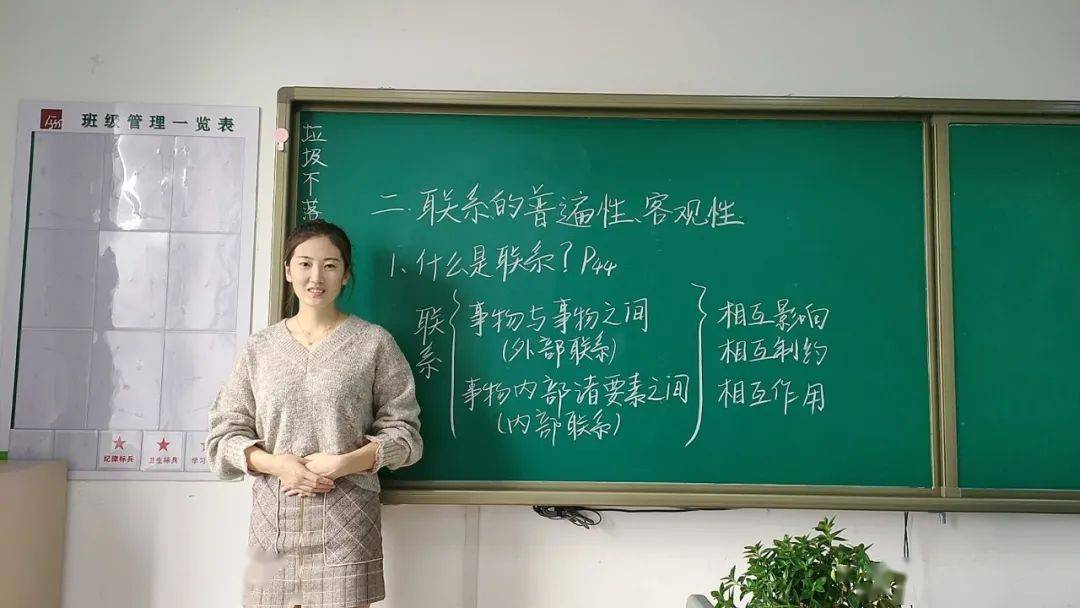 班级管理一览表
纪律标兵
卫生标兵
学习
垃圾不落
二.联系的普遍性、客观性
1、什么是联系?P44
联系
事物与事物之间
(外部联系)
事物内部诸要素之间
(内部联系)
相互影响
相互制约
相互作用